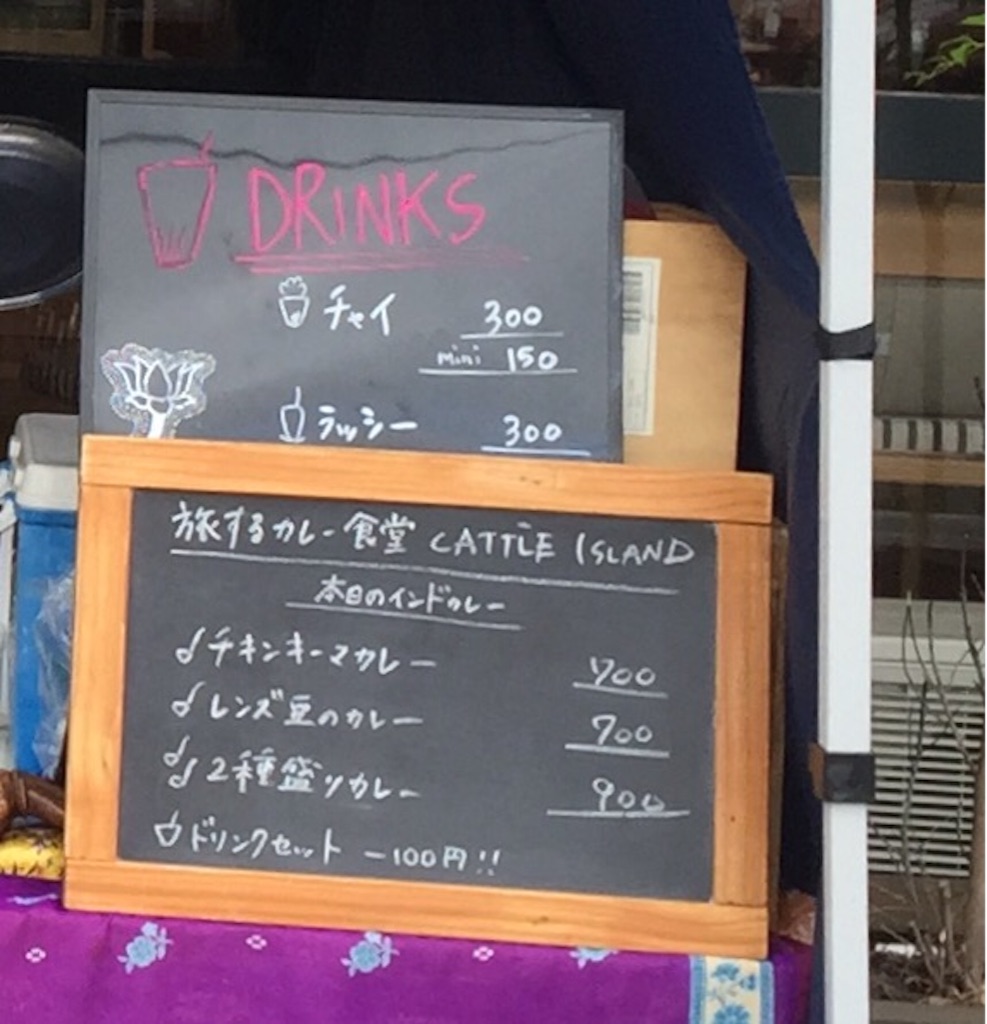 DRINKS
チャイ 300
mini 150
ラッシー 300
旅するカレー食堂 CATTLE ISLAND
本日のインドカレー
チキンキーマカレー 700
レンズ豆のカレー 700
2種盛りカレー 900
ドリンクセット －100円!!